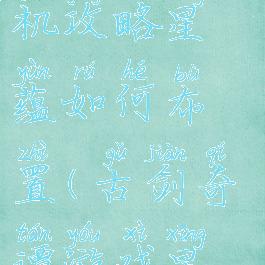 机攻略星
yùn rú hé bù
蕴如何布
zhì gǔ jiàn qí
置(古剑奇
tán yóu xì xīng
谭游戏星